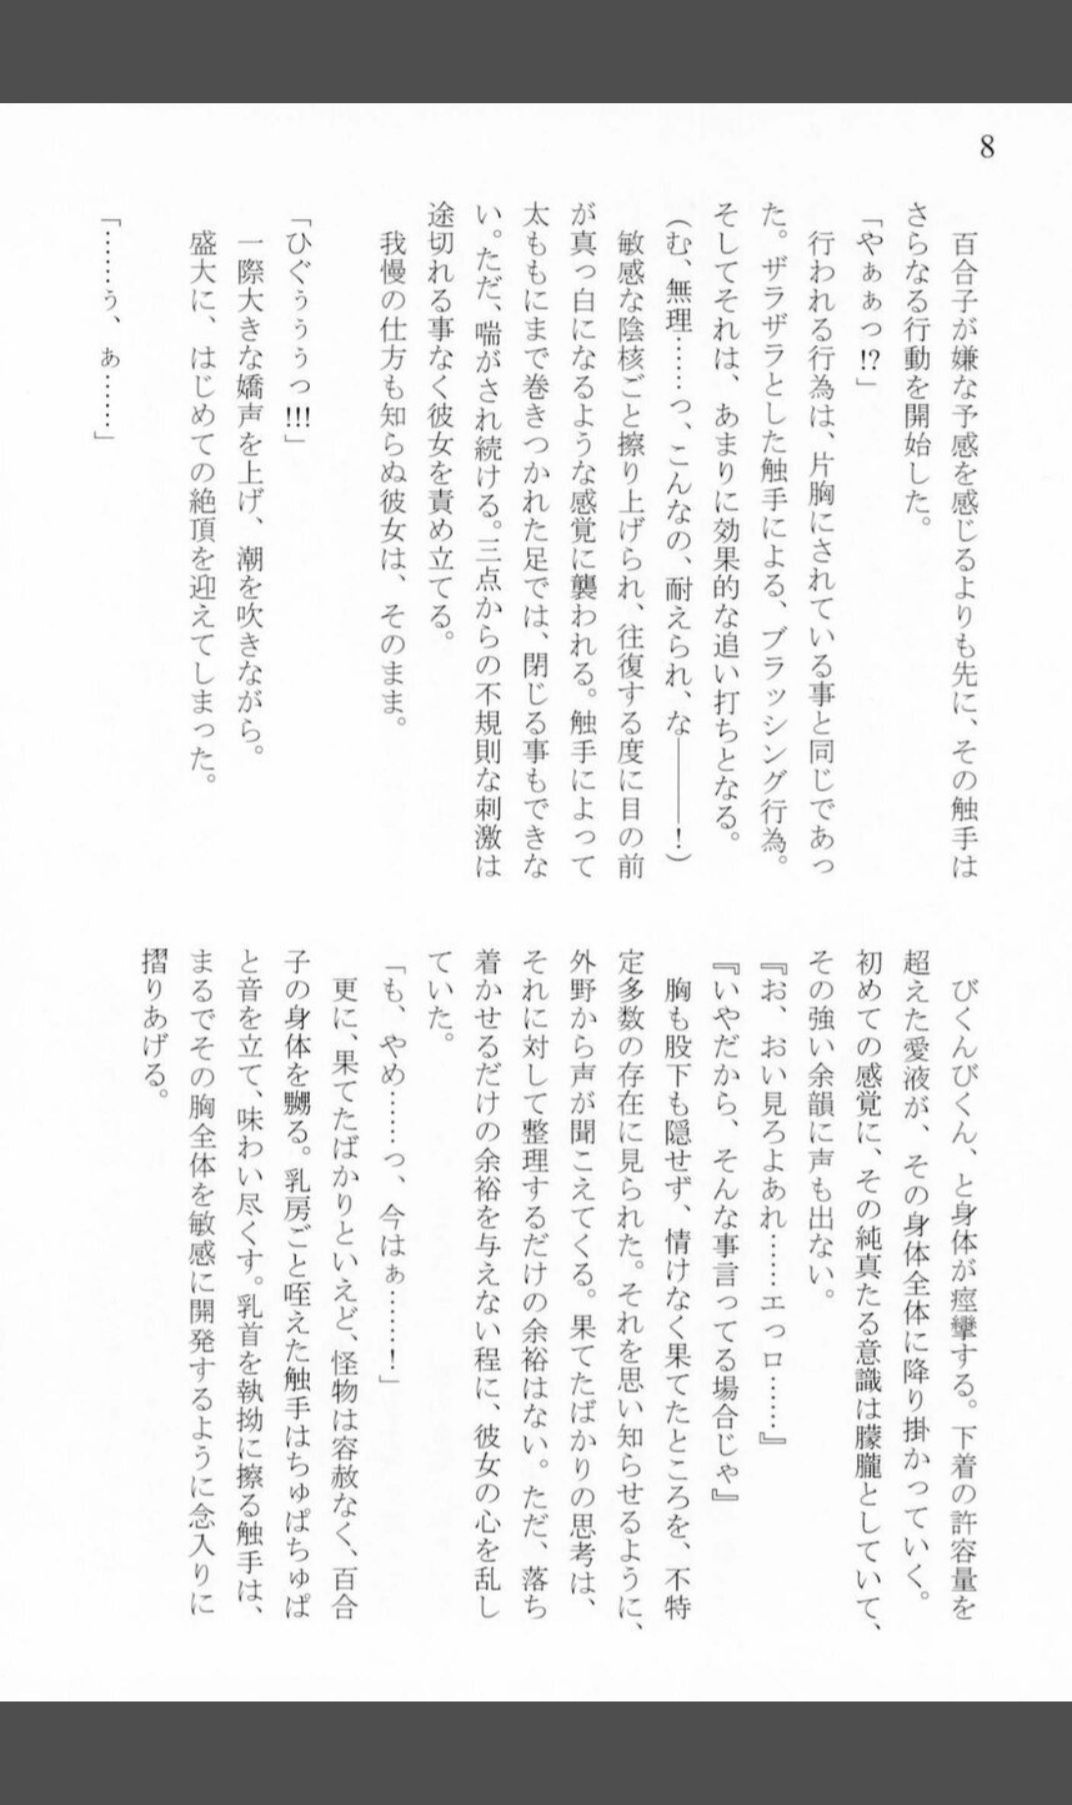 8
百合子が嫌な予感を感じるよりも先に、その触手は
さらなる行動を開始した。
「やぁぁっ!?」
行われる行為は、片胸にされている事と同じであっ
た。ザラザラとした触手による、ブラッシング行為。
そしてそれは、あまりに効果的な追い打ちとなる。
(む、無理……っ、こんなの、耐えられ、な――――!)
敏感な陰核ごと擦り上げられ、往復する度に目の前
が真っ白になるような感覚に襲われる。触手によって
太ももにまで巻きつかれた足では、閉じる事もできな
い。ただ、喘がされ続ける。三点からの不規則な刺激は
途切れる事なく彼女を責め立てる。
我慢の仕方も知らぬ彼女は、そのまま。
「ひぐぅぅぅっ!!!」
一際大きな嬌声を上げ、潮を吹きながら。
盛大に、はじめての絶頂を迎えてしまった。
「……ぅ、ぁ……」
びくんびくん、と身体が痙攣する。下着の許容量を
超えた愛液が、その身体全体に降り掛かっていく。
初めての感覚に、その純真たる意識は朦朧としていて、
その強い余韻に声も出ない。
『お、おい見ろよあれ……エっロ……』
『いやだから、そんな事言ってる場合じゃ』
胸も股下も隠せず、情けなく果てたところを、不特
定多数の存在に見られた。それを思い知らせるように、
外野から声が聞こえてくる。果てたばかりの思考は、
それに対して整理するだけの余裕はない。ただ、落ち
着かせるだけの余裕を与えない程に、彼女の心を乱し
ていた。
「も、やめ……っ、今はぁ……!」
更に、果てたばかりといえど、怪物は容赦なく、百合
子の身体を嬲る。乳房ごと咥えた触手はちゅぱちゅぱ
と音を立て、味わい尽くす。乳首を執拗に擦る触手は、
まるでその胸全体を敏感に開発するように念入りに
摺りあげる。